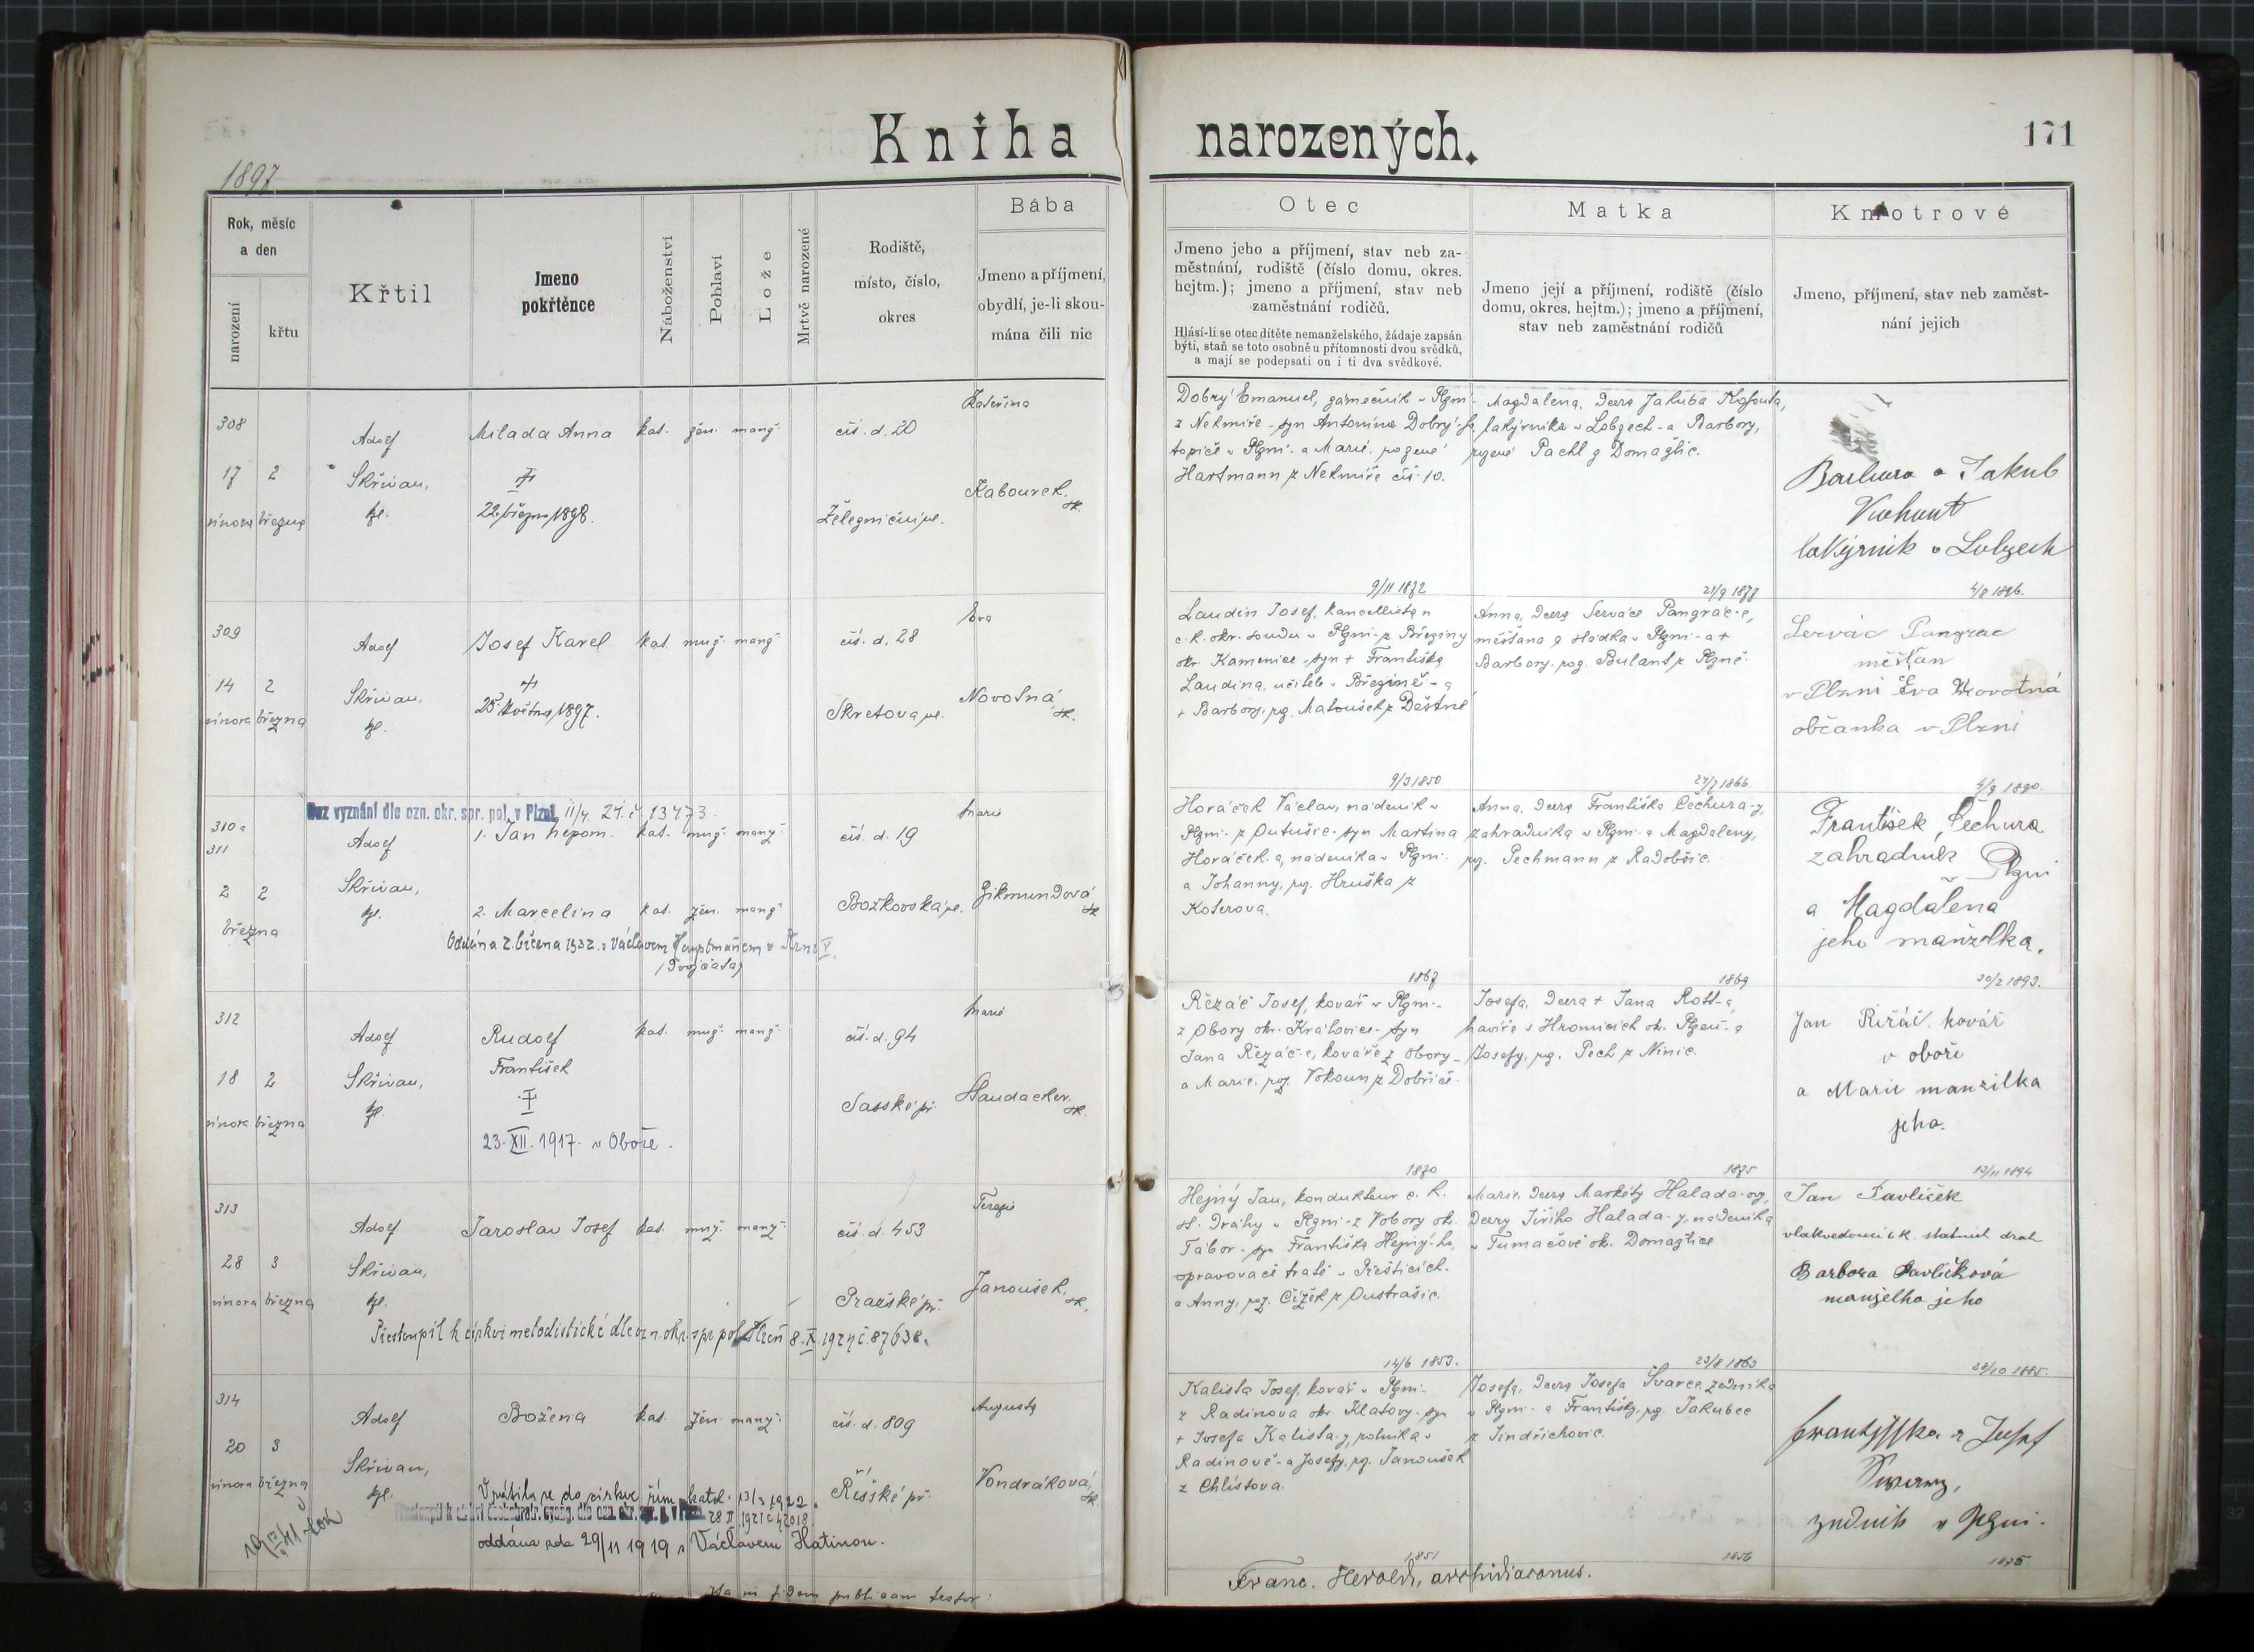 Kniha narozených.
171
1897
Rok, měsíc
a den
narození
křtu
Křtil
Jmeno
pokřtěnce
Náboženství
Pohlaví
Lože
Mrtvě narozené
Rodiště,
místo, číslo,
okres
Bába
Jmeno a příjmení,
obydlí, je-li skou-
mána čili nic
Otec
Jmeno jeho a příjmení, stav neb za-
městnání, rodiště (číslo domu, okres.
hejtm.); jmeno a příjmení, stav neb
zaměstnání rodičů.
Hlásí-li se otec dítěte nemanželského, žádaje zapsán
býti, staň se toto osobně u přítomnosti dvou svědků,
a mají se podepsati on i ti dva svědkové.
Matka
Jmeno její a příjmení, rodiště (číslo
domu, okres, hejtm.); jmeno a příjmení,
stav neb zaměstnání rodičů
Kmotrové
Jmeno, příjmení, stav neb zaměst-
nání jejich
308
17 2
února března
Adolf
Skřivan,
Milada Anna
22. března 1898.
kat. žen. manž.
čís. d. 20
Železniční ul.
Kateřina
Kabourek
Dobrý Emanuel, zámečník v Plzni-
z Nekmíře - syn Antonína Dobrý-ho,
topiče v Plzni - a Marie, rozené
Hartmann z Nekmíře čís. 10.
Magdalena, dcera Jakuba
lakýrníka v Lobzech - a Barbory,
rozené Pachl z Domažlic.
Barbora a Jakub
lakýrník v Lobzech
9/11 1872
21/9 1877
4/8 1896.
309
14 2
února března
Adolf
Skřivan,
Josef Karel
25. května 1897.
kat. muž. manž.
čís. d. 28
Skretova ul.
Eva
Novotná
Laudin Josef, kancellista u
c. k. okr. soudu v Plzni - z Březiny
okr. Kamenice - syn + Františka
Laudina, učitele v Březině - a
+ Barbory, roz. Matoušek z Deštné
Anna, dcera Serváce Pangrác-e,
měšťana a v Plzni - a +
Barbory, roz. Bulant z Plzně.
Servác Pangrac
měšťan
v Plzni Eva Novotná
občanka v Plzni
9/3 1850
27/7 1866.
4/9 1890.
310 a
311
2 2
března
Bez vyznání dle ozn. okr. spr. pol. v Plzni 11/4. 24. č. 13473.
Adolf
Skřivan,
1. Jan Nepom. kat. muž. manž.
2. Marcelina kat. žen. manž.
Oddána 2. března 1932 s Václavem v Plzni
(Dvojčata)
čís. d. 19
Božkovská ul.
Marie
Zikmundová
Horáček Václav, nádeník v
Plzni - z Dutušic - syn Martina
Horáček-a, nádeníka v Plzni -
a Johanny, roz. Hruška z
Koterova.
Anna, dcera Františka Čechura-y,
zahradníka v Plzni - a Magdaleny,
roz. Pechmann z Radobšic.
František Čechura
zahradník
v Plzni
a Magdalena
jeho manželka.
1867
1869
20/2 1893.
312
18 2
února března
Adolf
Skřivan,
Rudolf
František
23. XII. 1917. v Oboře.
kat. muž. manž.
čís. d. 94
Saské př.
Marie
Řezáč Josef, kovář v Plzni -
z Obory okr. Kralovice - syn
Jana Řezáč-e, kováře z Obory -
a Marie, roz. Vokoun z Dobříče.
Josefa, dcera + Jana Rott-a,
havíře v Hromicích ok. Plzeň - a
Josefy, roz. Pech z Nínic.
Jan Řezáč, kovář
v oboře
a Marie manzilka
jeho.
1870
1875
13/11 1894
313
28 3
února března
Adolf
Skřivan,
Jaroslav Josef
kat. muž. manž.
čís. d. 453
Pražské př.
Terezie
Janoušek,
Přestoupil k církvi metodistické dle ozn. okr. spr. pol. Plzeň 8. X. 1924 č. 87638.
Hejný Jan, kondukteur c. k.
st. dráhy v Plzni - z Vobory ok.
Tábor - syn Františka Hejný-ho,
opravovače tratě v Přešticích
a Anny, roz. Čížek z Oustrašic.
Marie, dcera Markéty Halada-ovy,
dcery Jiřího Halada-y, nádeníka
v Tumačově ok. Domažlice
Jan Pavlíček
vlakvedoucí c. k. státních drah
Barbora Pavlíčková
manželka jeho
14/6 1853.
23/8 1863
28/10 1885.
314
20 3
února března
Adolf
Skřivan,
Božena
kat. žen. manž.
čís. d. 809
Říšské př.
Augusta
Vondráková
Vrátila se do církve řím. katol. 13/3 1922.
28 II 1921 č 42018.
oddána zde 29/11 1919 s Václavem Hatinou.
Kalista Josef, kovář v Plzni -
z Radinova okr. Klatovy - syn
+ Josefa Kalista-y, rolníka v
Radinově - a Josefy, roz. Janoušek
z Chlistova.
Josefa, dcera Josefa Švarce, zedníka
v Plzni - a Františky, roz. Jakubec
z Jindřichovic.
Frantiska a Josef
zedník v Plzni.
1851
1856
1885
Franc. Herold, archidiaconus.